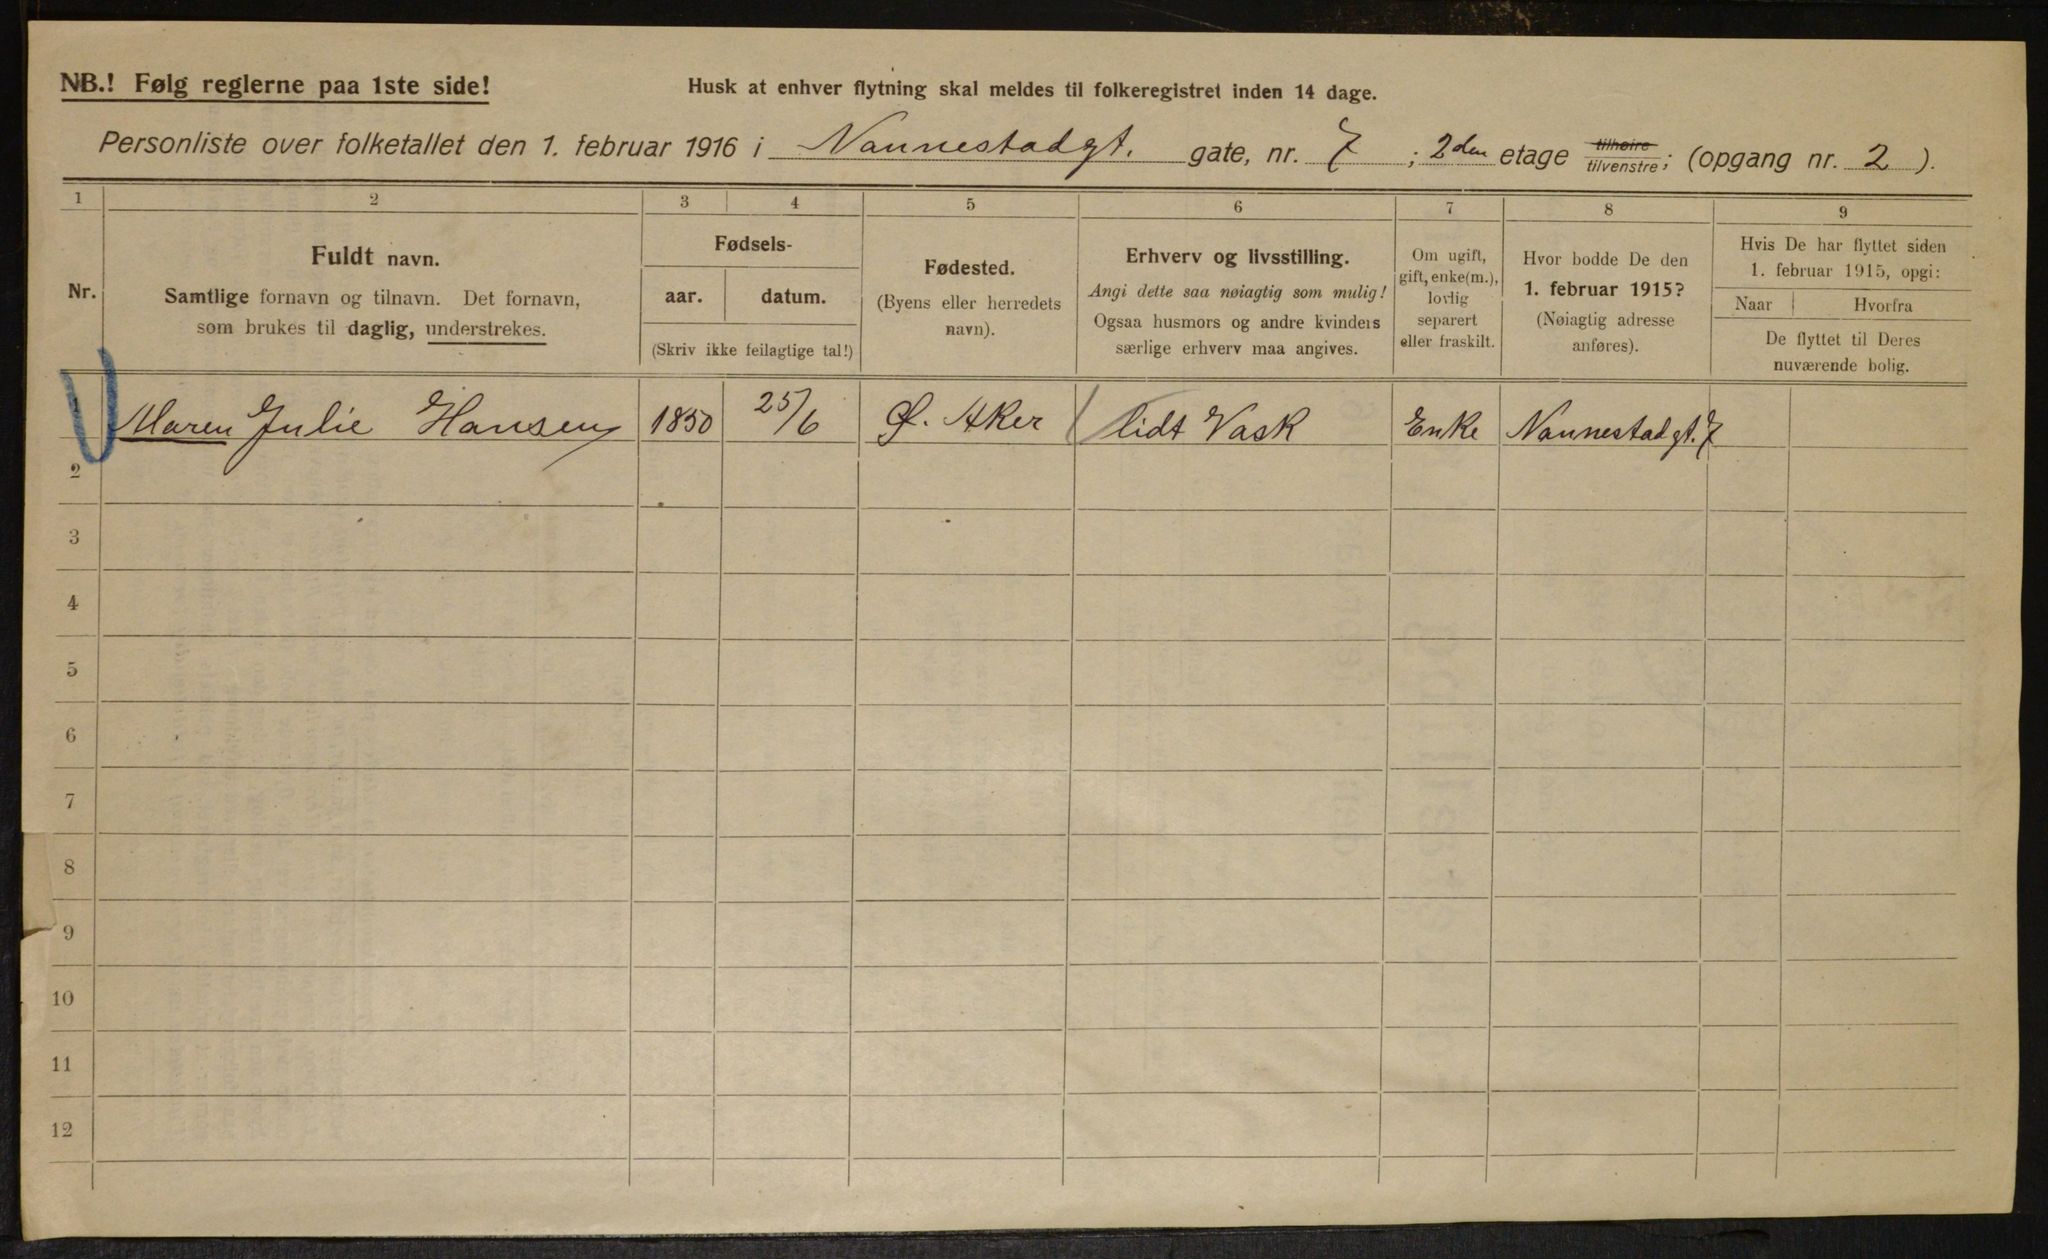 NB.! Følg reglerne paa 1ste side!
Husk at enhver flytning skal meldes til folkeregistret inden 14 dage.
Personliste over folketallet den 1. februar 1916 i Nannestadgt. gate, nr. 7 ; 2den etage tilhøire/tilvenstre; (opgang nr. 2 ).
1 2 3 4 5 6 7 8 9
Nr.
Fuldt navn.
Samtlige fornavn og tilnavn. Det fornavn,
som brukes til daglig, understrekes.
Fødsels-
aar. datum.
(Skriv ikke feilagtige tal!)
Fødested.
(Byens eller herredets
navn).
Erhverv og livsstilling.
Angi dette saa nøiagtig som mulig!
Ogsaa husmors og andre kvinders
særlige erhverv maa angives.
Om ugift,
gift, enke(m.),
lovlig
separert
eller fraskilt.
Hvor bodde De den
1. februar 1915?
(Nøiagtig adresse
anføres).
Hvis De har flyttet siden
1. februar 1915, opgi:
Naar Hvorfra
De flyttet til Deres
nuværende bolig.
1 Maren Julie Hansen 1850 25/6 Ø. Aker lidt Vask Enke Nannestadgt. 7
2
3
4
5
6
7
8
9
10
11
12